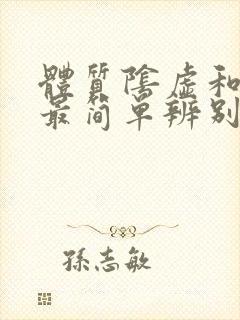 體質陰虛和
最简单辨别
孫志敏